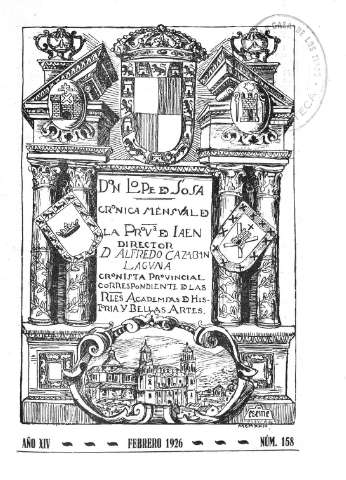 CASA DE LOS
TECA
DON LOPE D SOSA
CRONICA MENSVAL D
LA PROVᴬ D JAEN
DIRECTOR
D ALFREDO CAZABAN
LAGUNA
CRONISTA PROVINCIAL
CORRESPONDIENTE D LAS
RLES ACADEMIAS D HIS-
TORIA Y BELLAS ARTES.
AÑO XIV FEBRERO 1926 NÚM. 158